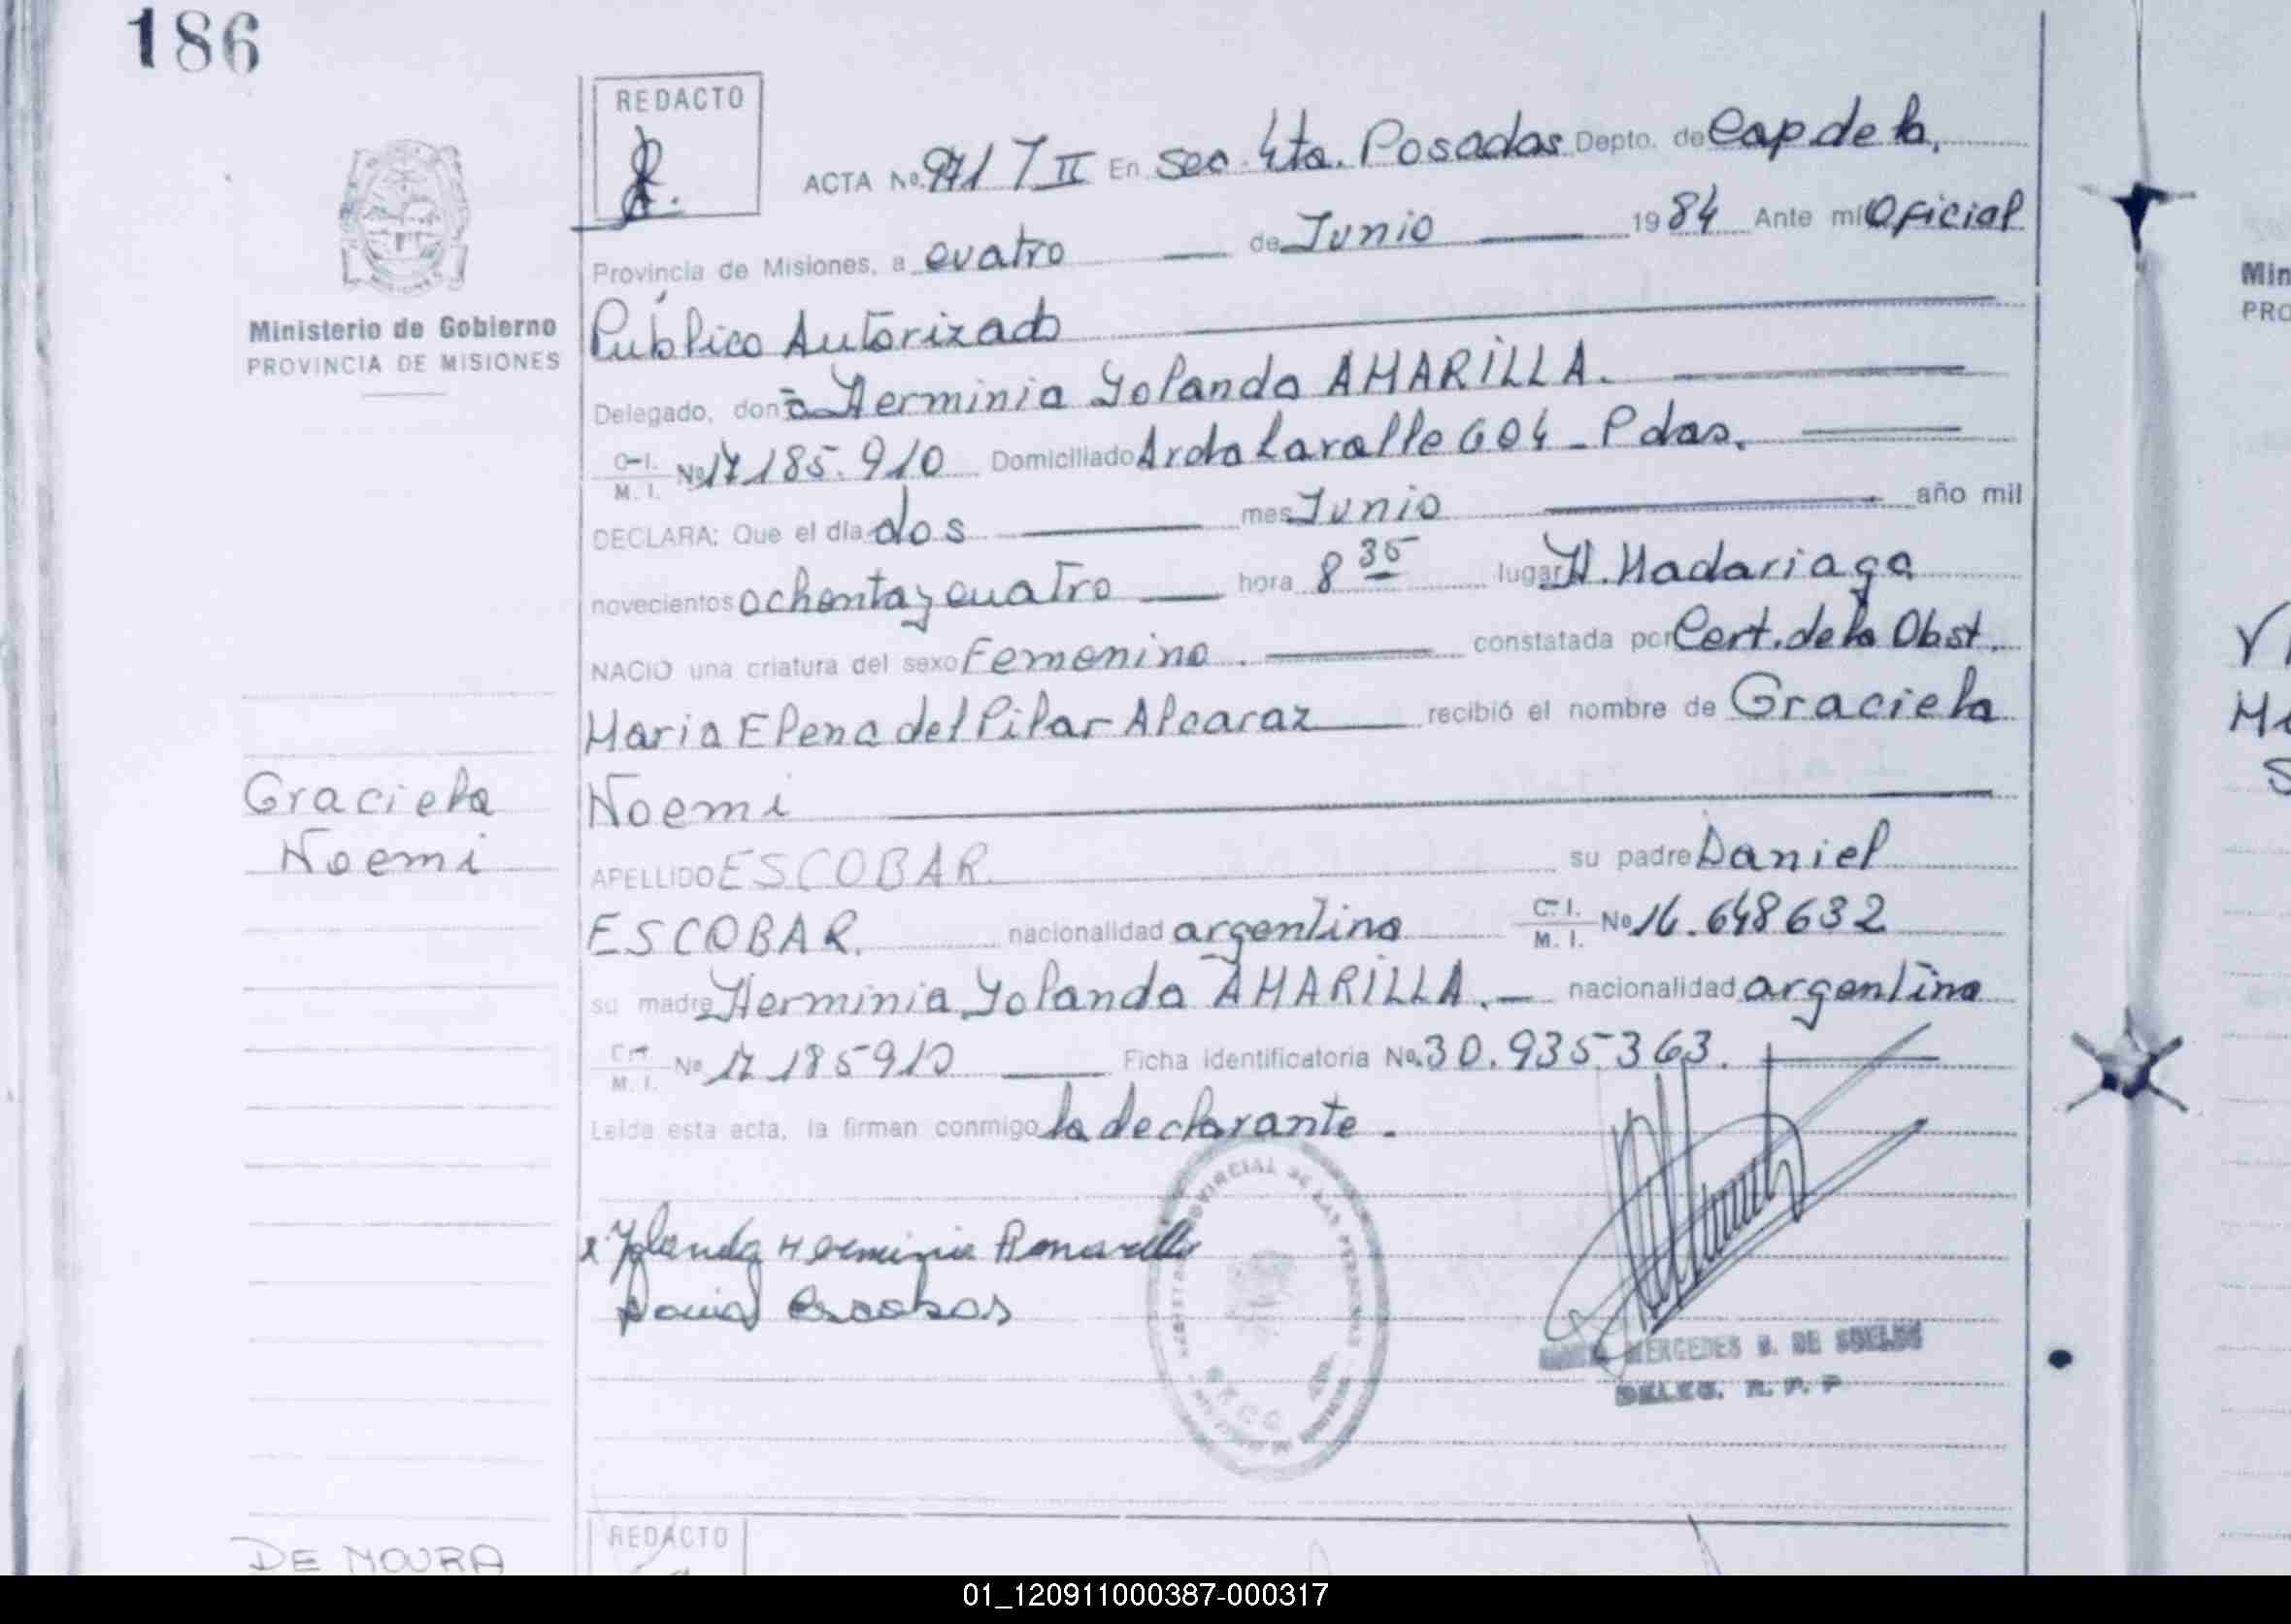 186
REDACTO
ACTA No. 971 T II En Sec. 4ta. Posadas Depto. de Cap de la.
Provincia de Misiones, a cuatro de Junio 1984 Ante mí Oficial
Ministerio de Gobierno
PROVINCIA DE MISIONES
Público Autorizado
Delegado, don a Herminia Yolanda AMARILLA.
C.I. M. I. No 17.185.910 Domiciliado Avda Lavalle 604 - Pdas.
DECLARA: Que el día dos mes Junio año mil
novecientos ochenta y cuatro hora 8 35 lugar H. Madariaga
NACIO una criatura del sexo Femenino. constatada por Cert. de la Obst.
Maria Elena del Pilar Alcaraz recibió el nombre de Graciela
Graciela
Noemi
Noemi
APELLIDO ESCOBAR. su padre Daniel
ESCOBAR. nacionalidad argentina C.I. M. I. No 16.648632
su madre Herminia Yolanda AMARILLA. nacionalidad argentina
C.I. M. I. No 17.185910 Ficha identificatoria No. 30.935363.
Leída esta acta, la firman conmigo la declarante.
Yolanda Herminia Amarilla
Daniel Escobar
PROVINCIAL DE LAS PERSONAS
MERCEDES B. DE
DELEG. R. P. P
DE MOURA
REDACTO
Min
PRO
01_120911000387-000317